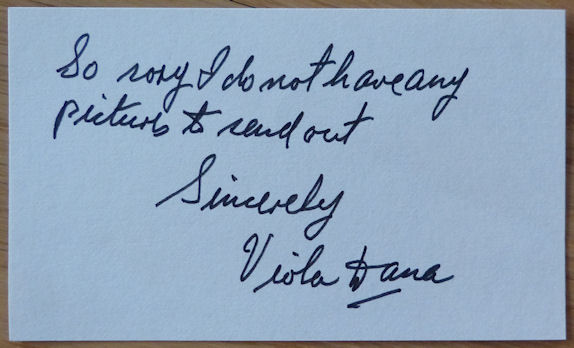 So sory I do not have any
pictures to send out
Sincerely
Viola Dana